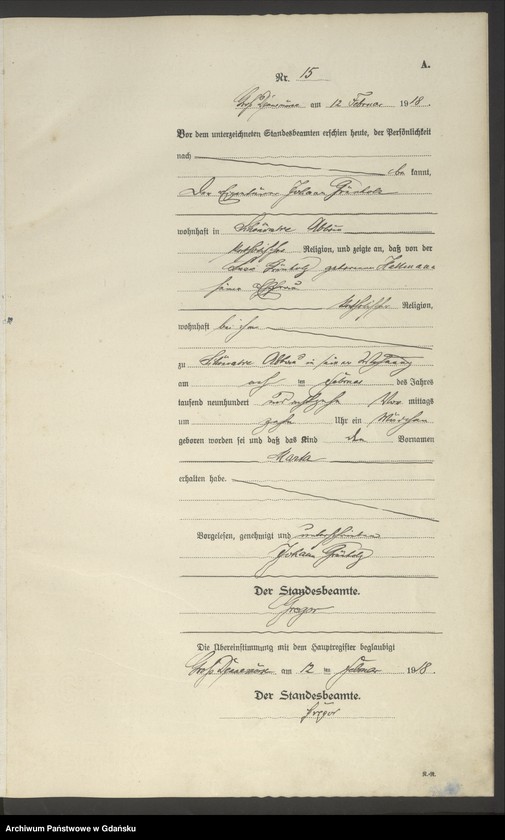 A.
Nr. 15
Groß am 12 Februar 1918.
Vor dem unterzeichneten Standesbeamten erschien heute, der Persönlichkeit
nach
be kannt,
Der Eigentümer Johann Grünholz
wohnhaft in Abbau
katholischer Religion, und zeigte an, daß von der
Grünholz geborenen
seiner Ehefrau
katholischer Religion,
wohnhaft bei ihm
zu Abbau in seiner Wohnung
am acht im Februar des Jahres
tausend neunhundert und achtzehn Vor mittags
um zehn Uhr ein Mädchen
geboren worden sei und daß das Kind den Vornamen
Marta
erhalten habe.
Vorgelesen, genehmigt und unterschrieben
Johann Grünholz
Der Standesbeamte.
Die Übereinstimmung mit dem Hauptregister beglaubigt
Groß am 12 ten Februar 1918.
Der Standesbeamte.
K.-N.
Archiwum Państwowe w Gdańsku